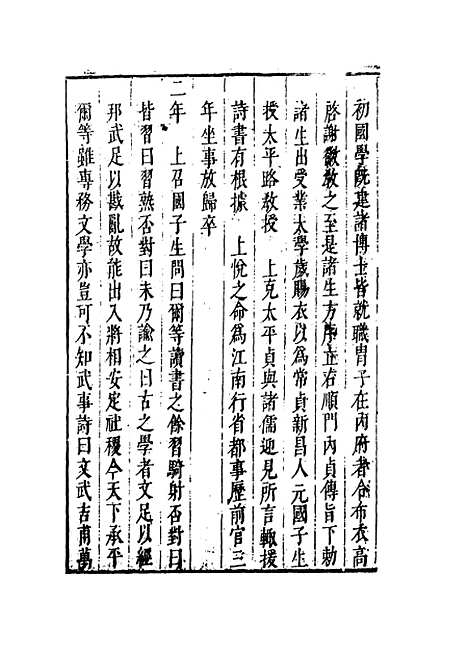 初國學既建諸博士皆就職胄子在內府者合布衣高
啓謝徽教之至是諸生方序立右順門內貞傳旨下勅
諸生出受業太學歲賜衣以為常貞新昌人元國子生
授太平路敎授　上克太平貞與諸儒迎見所言輙援
詩書有根據　上悅之命為江南行省都事歷前官三
年坐事放歸卒
二年　上召國子生問曰爾等讀書之餘習騎射否對曰
皆習曰習熟否對曰未乃諭之曰古之學者文足以經
邦武足以戡亂故能出入將相安定社稷今天下承平
爾等雖專務文學亦豈可不知武事詩曰文武吉甫萬